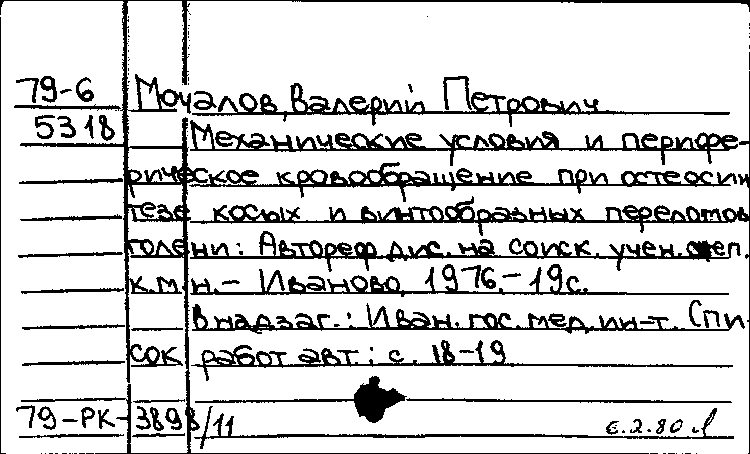 79-6 Мочалов, Валерий Петрович
5318 Механические условия и перифе-
рическое кровообращение при остеосин
тезе косых и винтообразных переломов
голени: Автореф. дис. на соиск. учен. степ.
к.м.н.- Иваново, 1976.-19с.
В надзаг.: Иван. гос. мед. ин-т. Спи-
сок работ авт.: с. 18-19
79-РК-3898/11 6.2.80